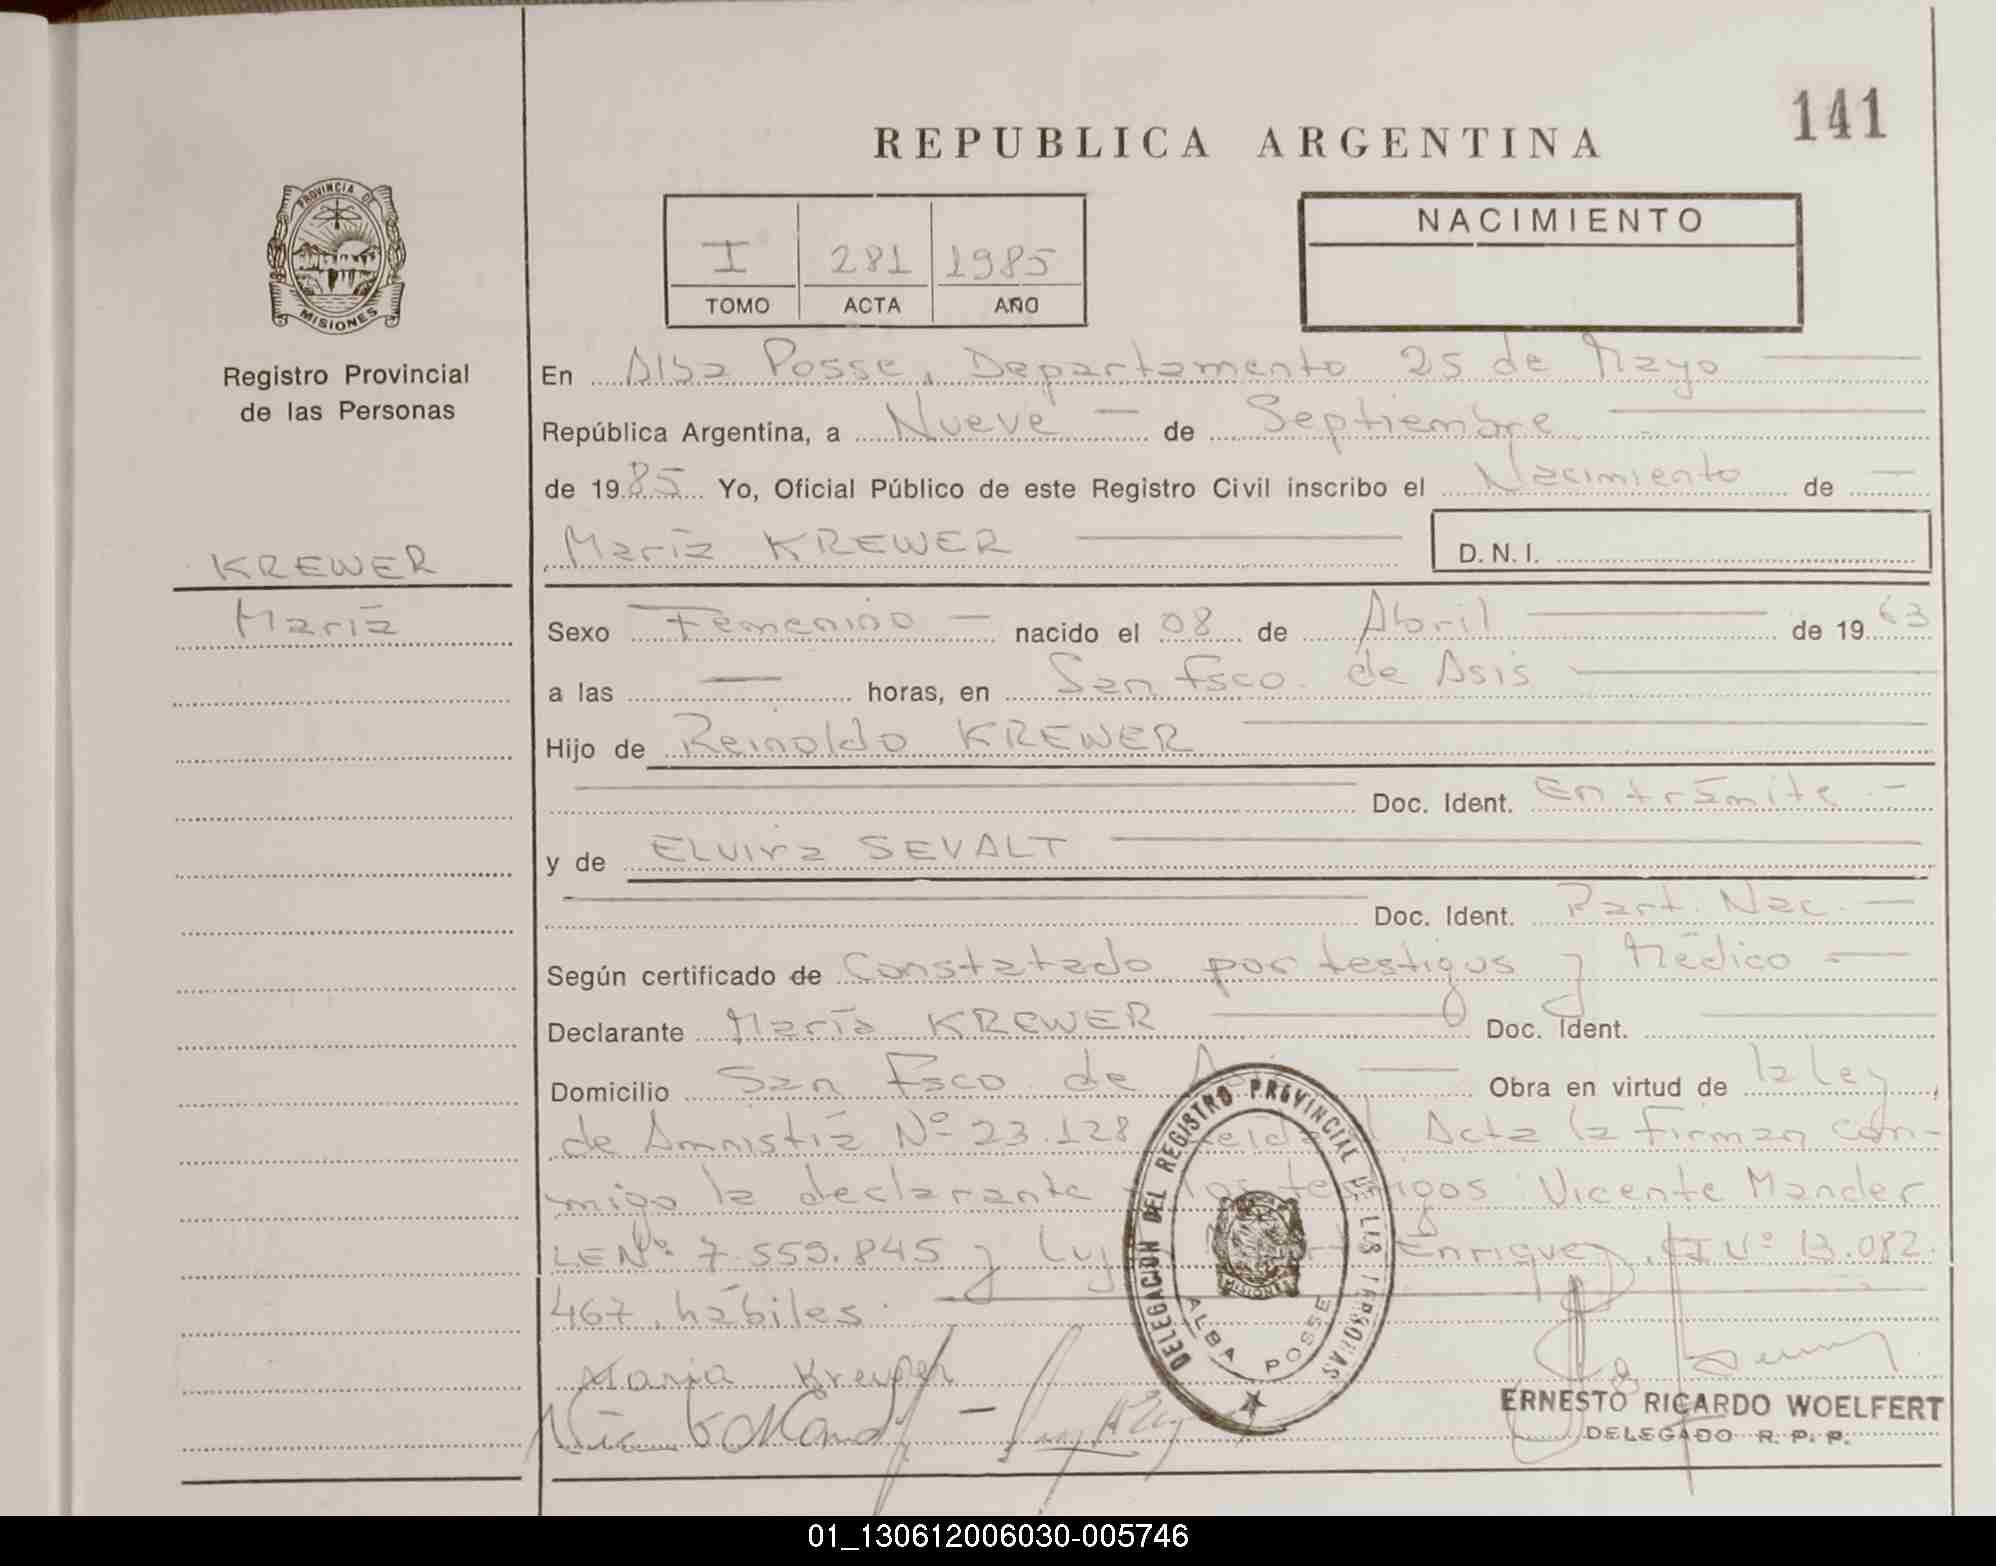 141
REPUBLICA ARGENTINA
PROVINCIA DE
MISIONES
Registro Provincial
de las Personas
KREWER
María
I 281 1985
TOMO ACTA AÑO
NACIMIENTO
En Alba Posse, Departamento 25 de Mayo
República Argentina, a Nueve de Septiembre
de 1985 Yo, Oficial Público de este Registro Civil inscribo el Nacimiento de
María KREWER D.N.I.
Sexo Femenino nacido el 08 de Abril de 1963
a las — horas, en San Fsco. de Asis
Hijo de Reinoldo KREWER
Doc. Ident. En trámite.-
y de ELvira SEVALT
Doc. Ident. Part. Nac.-
Según certificado de Constatado por testigos y Médico
Declarante María KREWER Doc. Ident.
Domicilio San Fsco de Obra en virtud de la ley
de Amnistía Nº 23.128 Acta la firman con-
migo la declarante los testigos Vicente Mander
LE Nº 7.559.845 y Enriquez, CI Nº 13.082.
467, hábiles.
Maria Krewer
DELEGACION DEL REGISTRO PROVINCIAL DE LAS PERSONAS
MISIONES
ALBA POSSE
ERNESTO RICARDO WOELFERT
DELEGADO R. P. P.
01_130612006030-005746